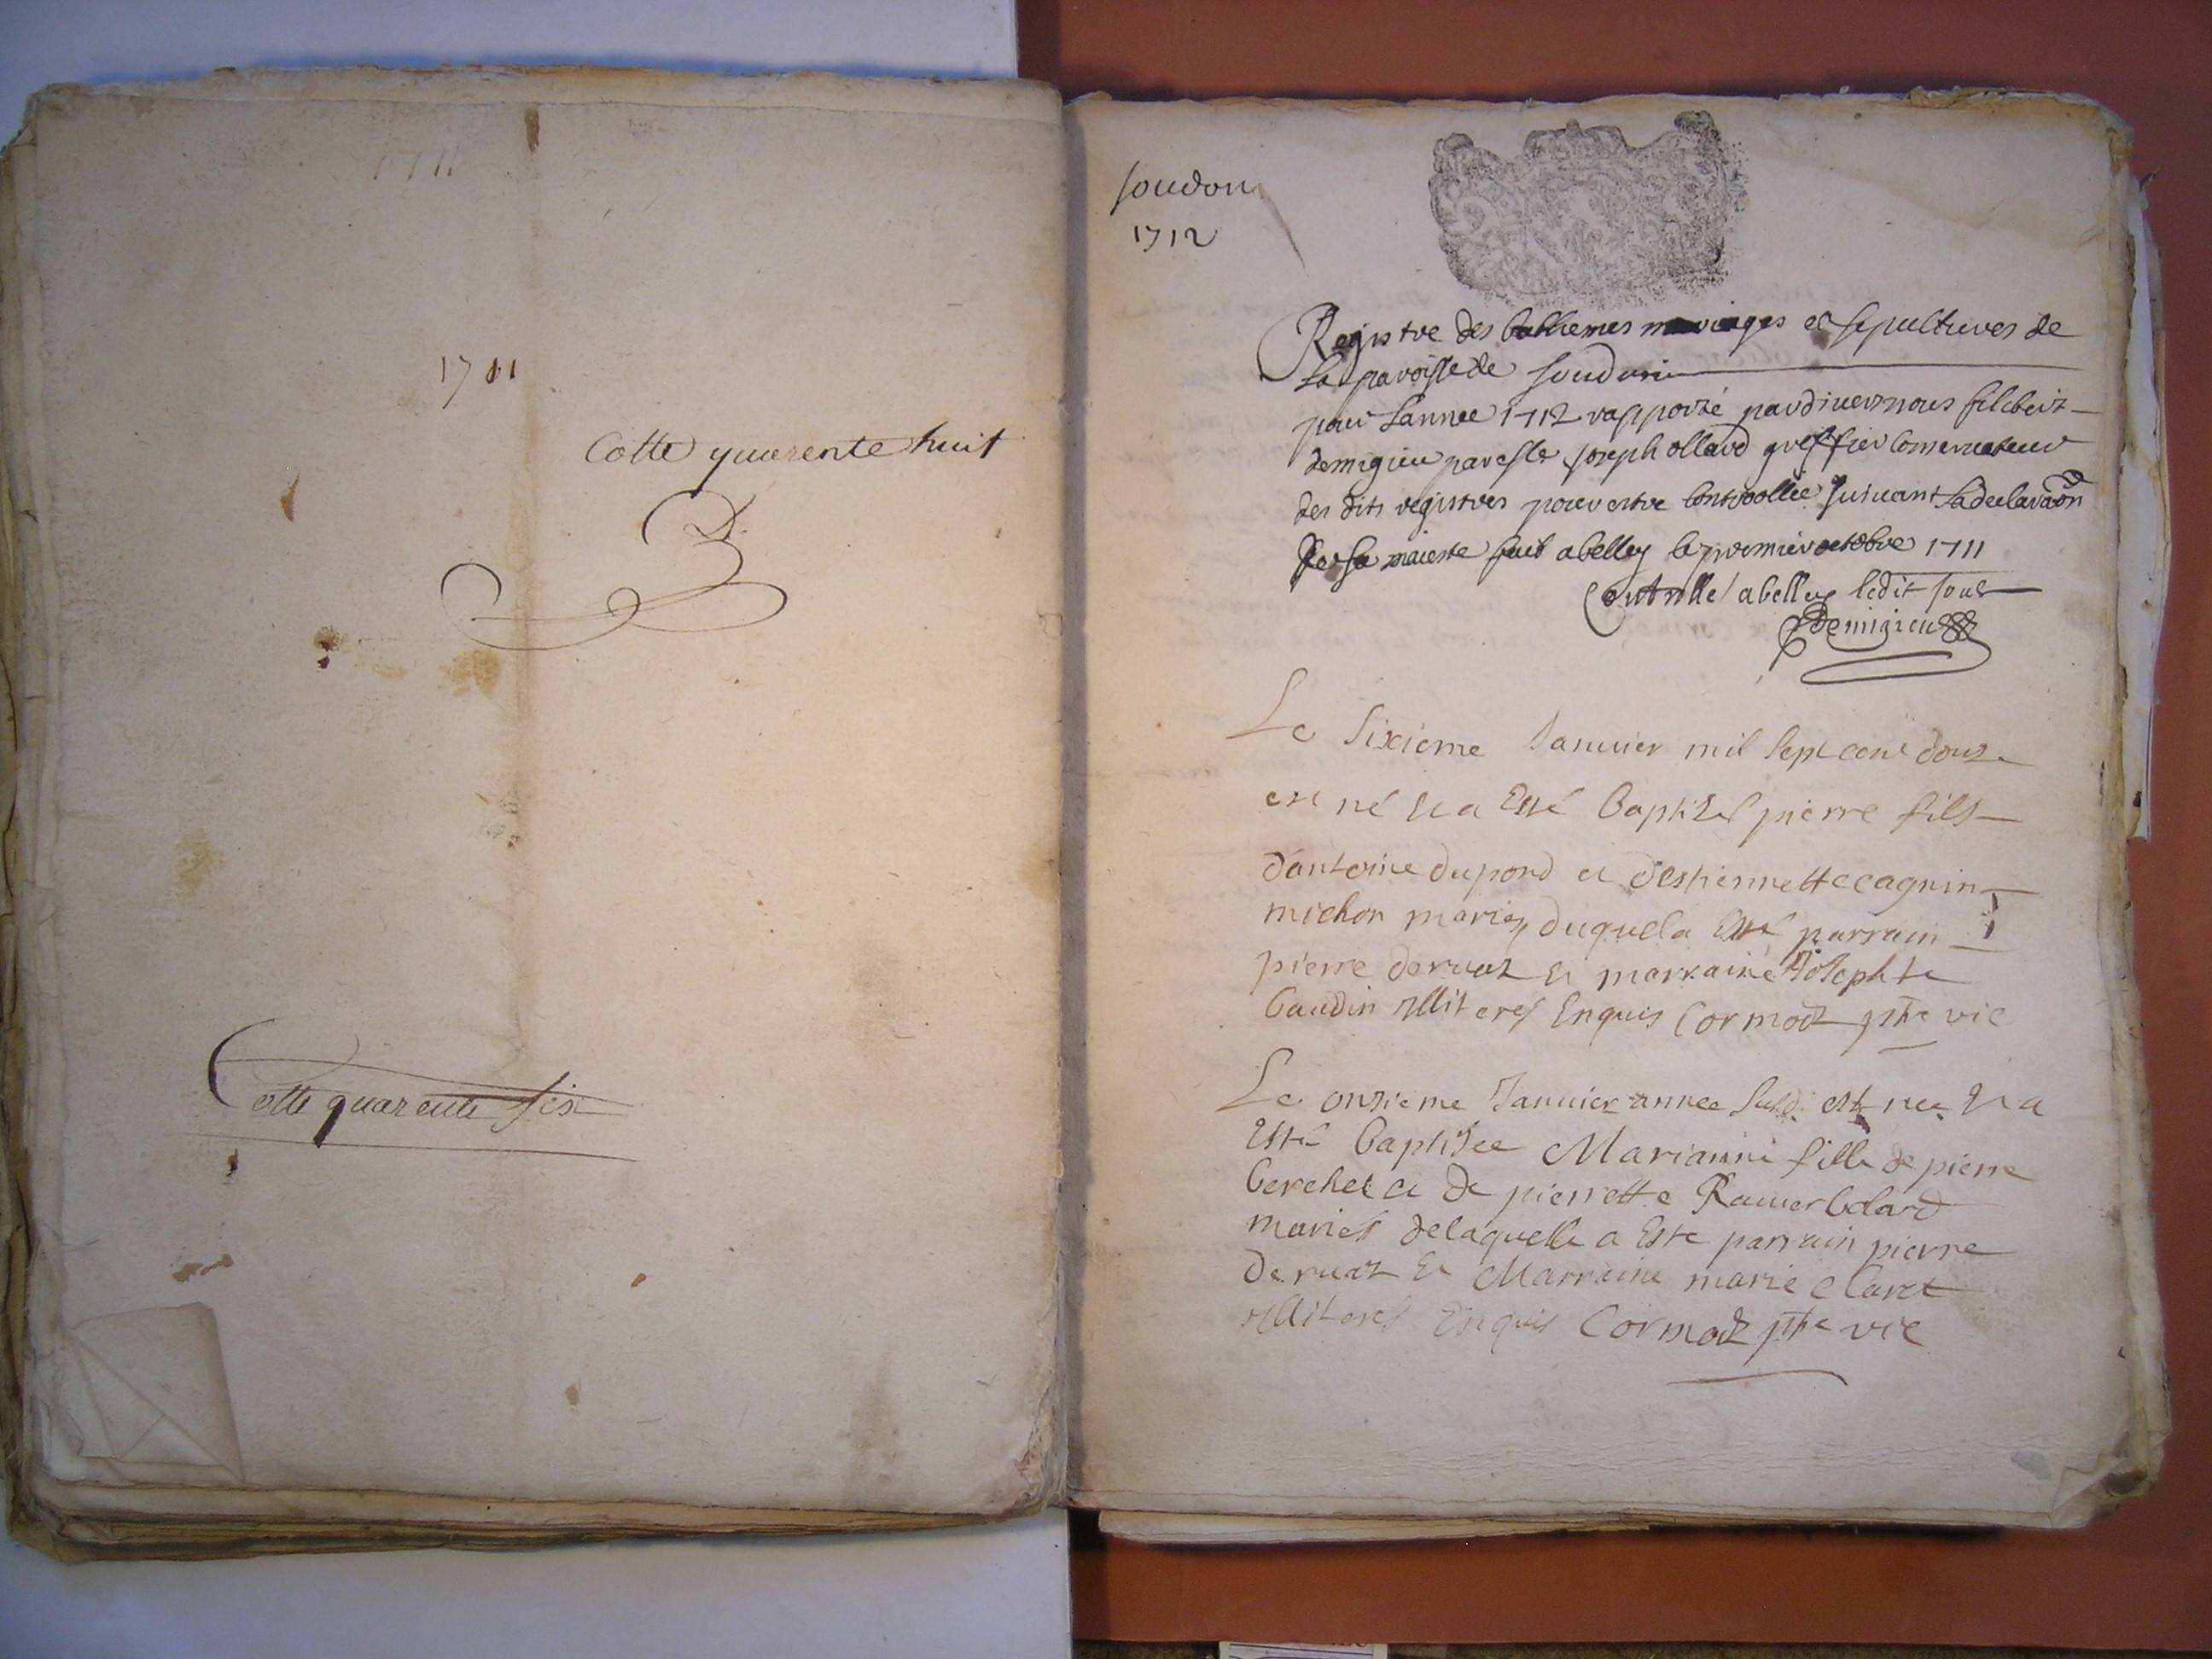 1711
1711
Cotte quarente huit
Cotte quarente six
soudon
1712
Registre des bathemes mariages et sepultures de
La paroisse de soudon
pour Lannee 1712 rapporté pardivers nous filibert
demigieu joseph ollard greffier Conservateur
des dits registres pour estre Controollée suivant La declaraōn
de sa maieste fait abelley le premier octobre 1711
Controlle abelley ledit jour
Demigieu
Le sixieme Januier mil sept cent douze
est né et a Esté baptisé pierre fils
d'antoine dupond et d'estiennette cagnin
michon mariés, duquel a Esté parrain
pierre deruaz et marraine Josephte
baudin illiteres Enquis Cormoz ptre vic
Le onzieme Januier annee susd. est nee et a
Esté baptisee Marianne fille de pierre
berchet et de pierrette Rauier bolard
mariés delaquelle a Esté parrain pierre
Deruaz Et Marraine marie Claret
illiteres Enquis Cormoz ptre vic